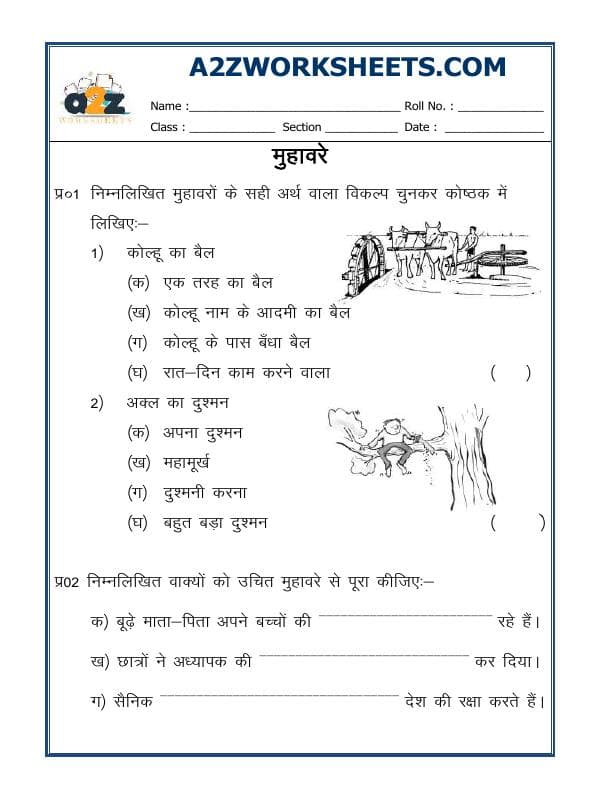 A2ZWORKSHEETS.COM
a2z
WORKSHEETS
Name :______________________________ Roll No. : _____________
Class : _____________ Section ___________ Date : _______________
मुहावरे
प्र०1 निम्नलिखित मुहावरों के सही अर्थ वाला विकल्प चुनकर कोष्ठक में
लिखिए:–
1) कोल्हू का बैल
(क) एक तरह का बैल
(ख) कोल्हू नाम के आदमी का बैल
(ग) कोल्हू के पास बँधा बैल
(घ) रात–दिन काम करने वाला ( )
2) अक्ल का दुश्मन
(क) अपना दुश्मन
(ख) महामूर्ख
(ग) दुश्मनी करना
(घ) बहुत बड़ा दुश्मन ( )
प्र02 निम्नलिखित वाक्यों को उचित मुहावरे से पूरा कीजिए:–
क) बूढ़े माता–पिता अपने बच्चों की ________________________ रहे हैं।
ख) छात्रों ने अध्यापक की _____________________________ कर दिया।
ग) सैनिक _________________________________ देश की रक्षा करते हैं।